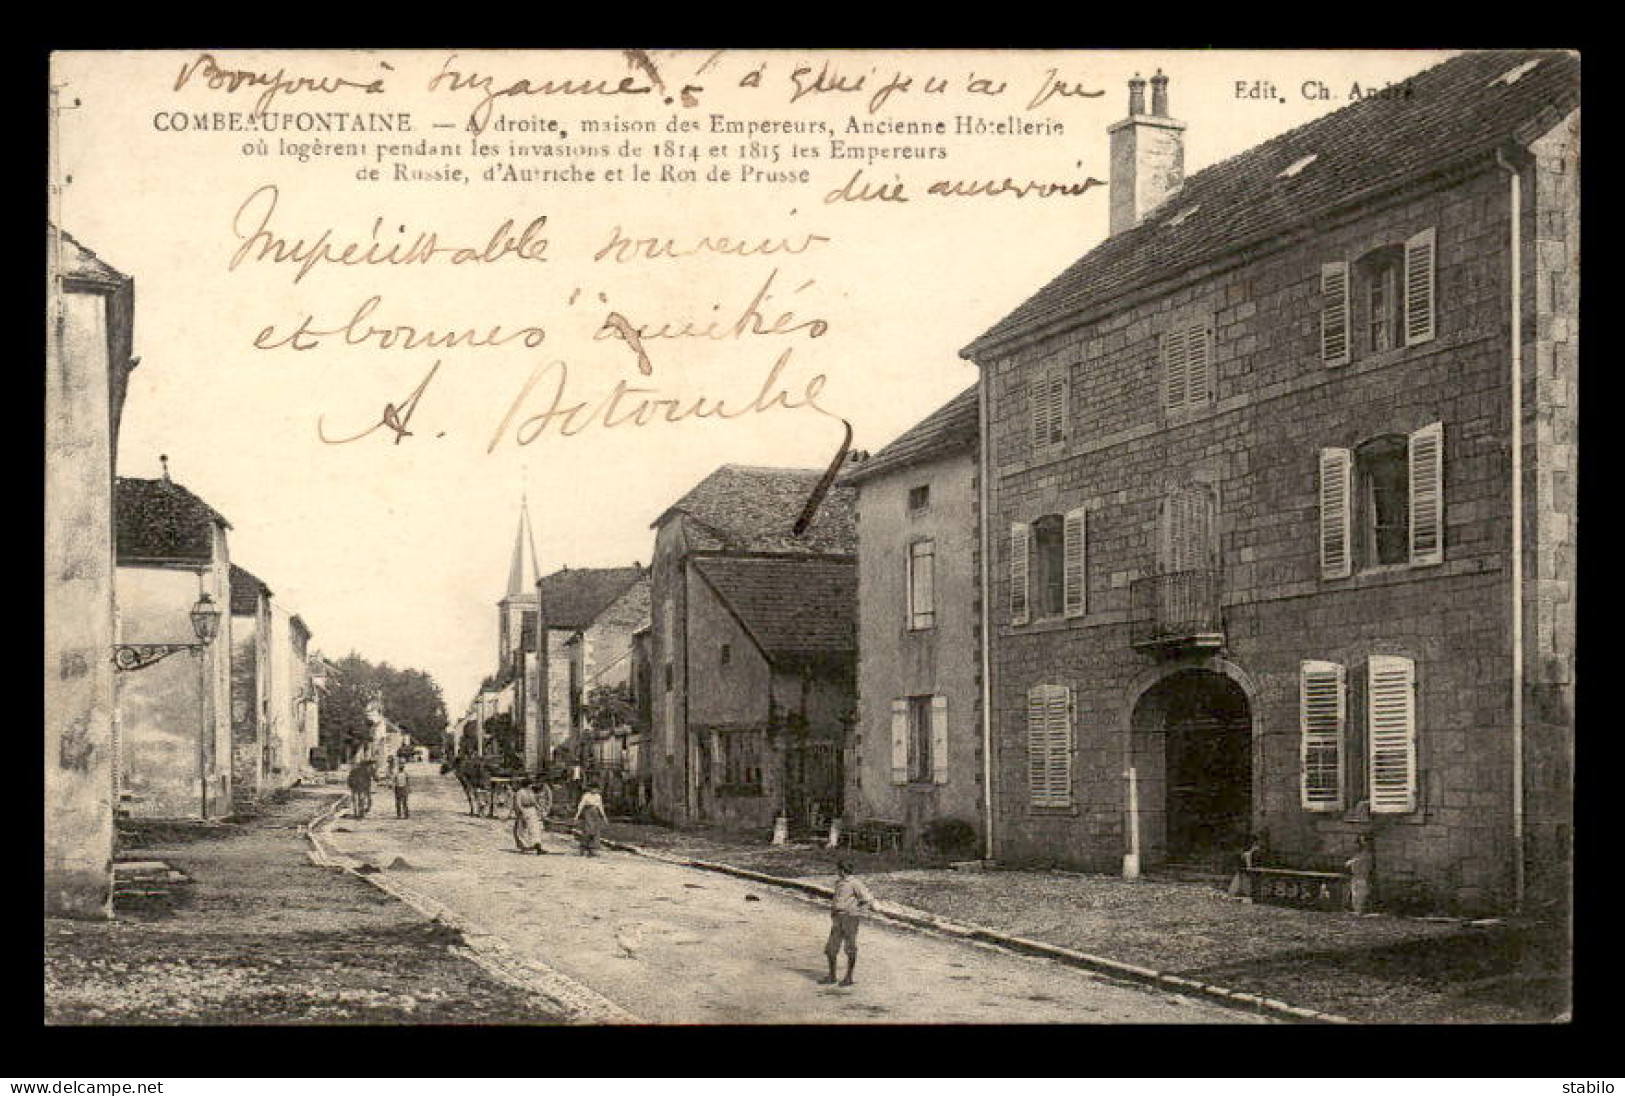 Bonjour à Suzanne ! à qui je n'ai pu
Edit. Ch. André
COMBEAUFONTAINE — A droite, maison des Empereurs, Ancienne Hôtellerie
où logèrent pendant les invasions de 1814 et 1815 les Empereurs
de Russie, d'Autriche et le Roi de Prusse
dire aurevoir
Impérissable souvenir
et bonnes amitiés
A.
delcampe.net
stabilo